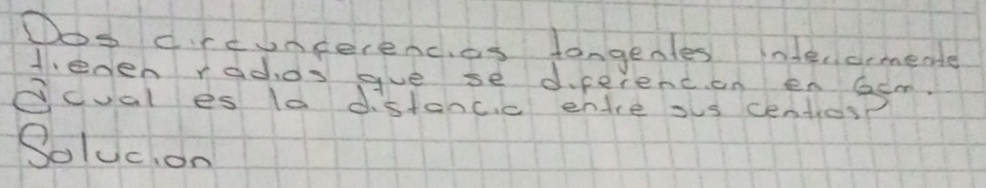 Dos circunferencias tangentes interiormente
tienen radios que se diferencian en 6cm.
¿cual es la distancia entre sus centros?
Solucion